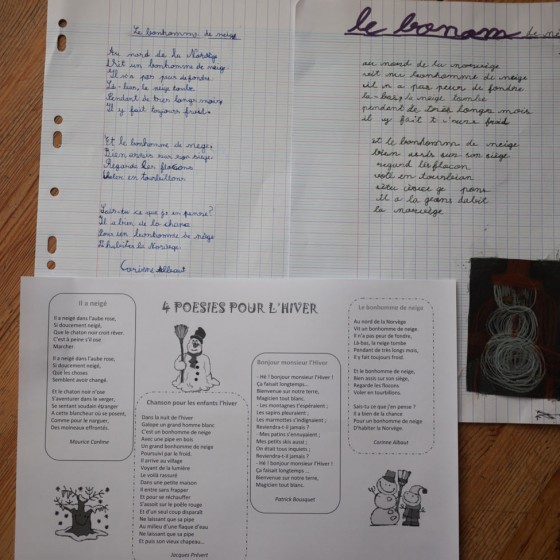 Le bonhomme de neige
Au nord de la Norvège
Vit un bonhomme de neige.
Il n'a pas peur de fondre
Là-bas, la neige tombe
Pendant de très longs mois,
Il y fait toujours froid.
Et le bonhomme de neige,
Bien assis sur son siège
Regarde les flocons
Voler en tourbillons
Sais-tu ce que
Il a bien de la chance
bonhomme de neige
D'habiter la Norvège
Corinne Albaut
le bonom de
au nord de la norvège
vit un bonhomme de neige
il n a pas peur de fondre
la-bas, la neige tombe
pendant de très longs mois
il y fait
et le bonhomm de neige
bien assis sur son siège
la norvège
4 POESIES POUR L'HIVER
Il a neigé
Il a neigé dans l'aube rose,
Si doucement neigé,
Que le chaton noir croit rêver.
C'est à peine s'il ose
Marcher.
Il a neigé dans l'aube rose,
Si doucement neigé,
Que les choses
Semblent avoir changé.
Et le chaton noir n'ose
S'aventurer dans le verger,
Se sentant soudain étranger
A cette blancheur où se posent,
Comme pour le narguer,
Des moineaux effrontés.
Maurice Carême
Chanson pour les enfants l'hiver
Dans la nuit de l'hiver
Galope un grand homme blanc
C'est un bonhomme de neige
Avec une pipe en bois
Un grand bonhomme de neige
Poursuivi par le froid.
Il arrive au village
Voyant de la lumière
Le voilà rassuré
Dans une petite maison
Il entre sans frapper
Et pour se réchauffer
S'assoit sur le poêle rouge
Et d'un seul coup disparaît
Ne laissant que sa pipe
Au milieu d'une flaque d'eau
Ne laissant que sa pipe
Et puis son vieux chapeau…
Jacques Prévert
Bonjour monsieur l'Hiver
- Hé ! bonjour monsieur l'Hiver !
Ça faisait longtemps…
Bienvenue sur notre terre,
Magicien tout blanc.
- Les montagnes t'espéraient ;
Les sapins pleuraient ;
Les marmottes s'indignaient ;
Reviendra-t-il jamais ?
- Mes patins s'ennuyaient ;
Mes petits skis aussi ;
On était tous inquiets ;
Reviendra-t-il jamais ?
- Hé ! bonjour monsieur l'Hiver ?
Ça faisait longtemps …
Bienvenue sur notre terre,
Magicien tout blanc.
Patrick Bousquet
Le bonhomme de neige
Au nord de la Norvège
Vit un bonhomme de neige.
Il n'a pas peur de fondre,
Là-bas, la neige tombe
Pendant de très longs mois,
Il y fait toujours froid.
Et le bonhomme de neige,
Bien assis sur son siège,
Regarde les flocons
Voler en tourbillons.
Sais-tu ce que j'en pense ?
Il a bien de la chance
Pour un bonhomme de neige
D'habiter la Norvège.
Corinne Albaut